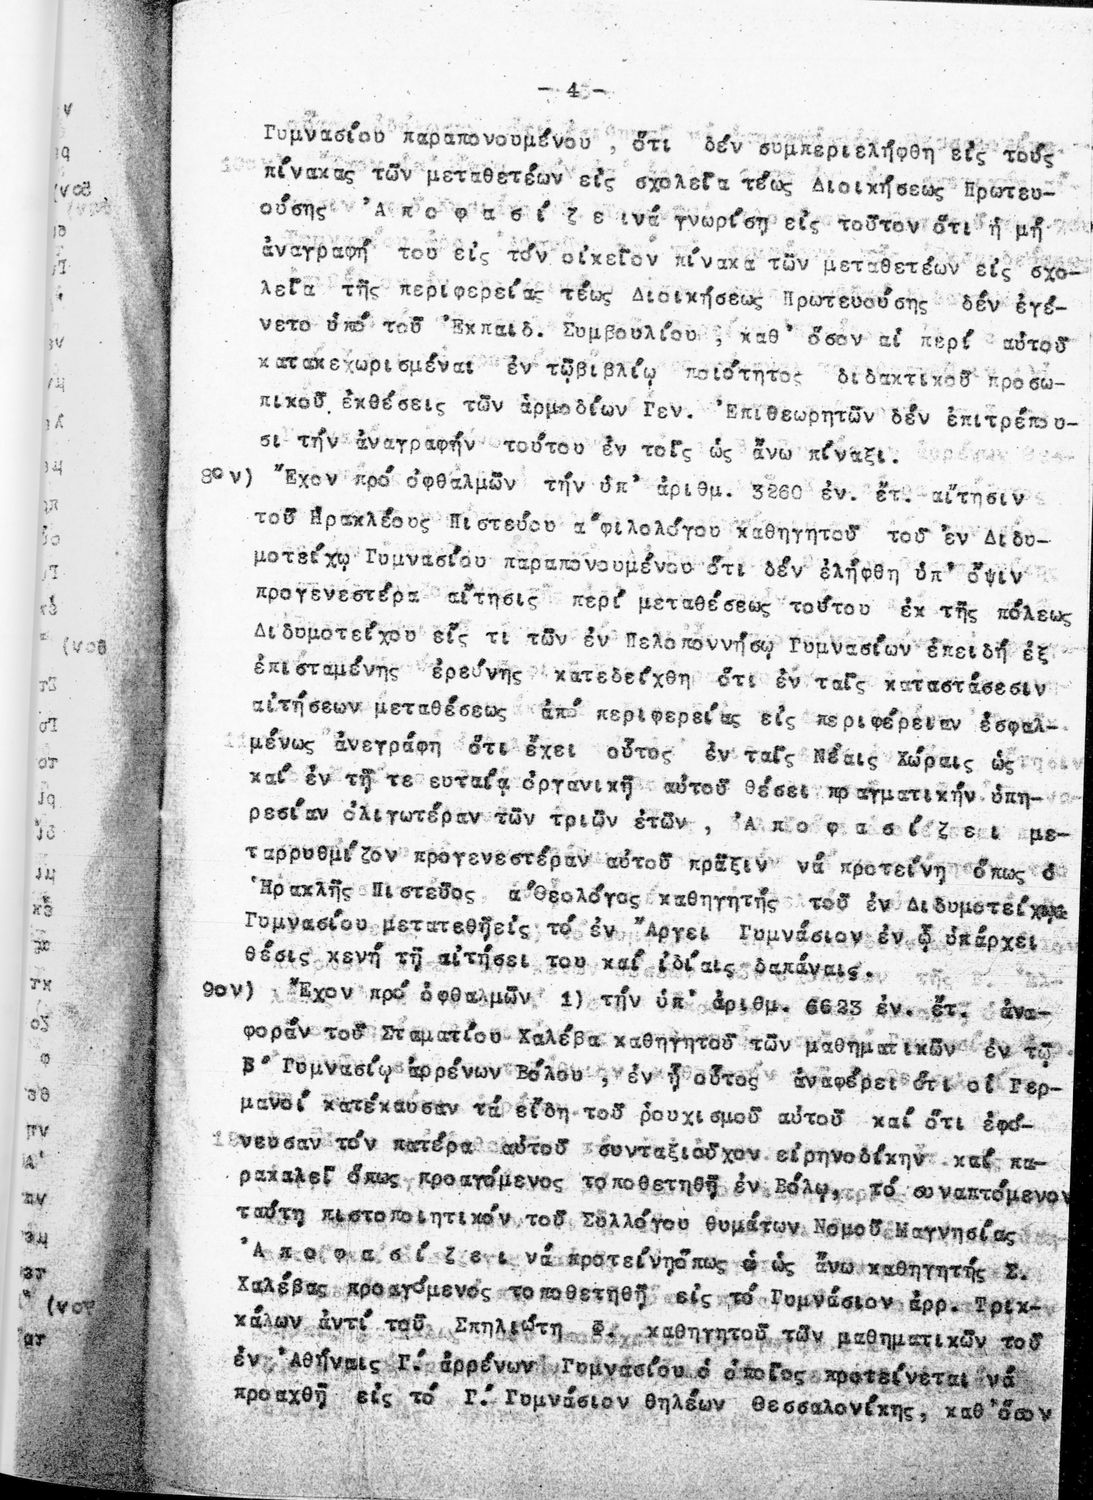 - 4 -
Γυμνασίου παραπονουμένου , ὅτι δέν συμπεριελήφθη εἰς τούς
πίνακας τῶν μεταθετέων εἰς σχολεῖα τέως Διοικήσεως Πρωτευ-
ούσης 'Α π ο φ α σ ί ζ ε ινά γνωρίση εἰς τοῦτον ὅτι ἡ μή
ἀναγραφή του εἰς τόν οἰκεῖον πίνακα τῶν μεταθετέων εἰς σχο-
λεῖα τῆς περιφερείας τέως Διοικήσεως Πρωτευούσης δέν ἐγέ-
νετο ὑπό τοῦ 'Εκπαιδ. Συμβουλίου , καθ' ὅσον αἱ περί αὐτοῦ
κατακεχωρισμέναι ἐν τῷβιβλίῳ ποιότητος διδακτικοῦ προσω-
πικοῦ ἐκθέσεις τῶν ἁρμοδίων Γεν. 'Επιθεωρητῶν δέν ἐπιτρέπου-
σι τήν ἀναγραφήν τούτου ἐν τοῖς ὡς ἄνω πίναξι.
8ον) Ἔχον πρό ὀφθαλμῶν τήν ὑπ' ἀριθμ. 3260 ἐν. ἔτ. αἴτησιν
τοῦ Ηρακλέους Πιστεύου α'φιλολόγου καθηγητοῦ τοῦ ἐν Διδυ-
μοτείχῳ Γυμνασίου παραπονουμένου ὅτι δέν ἐλήφθη ὑπ' ὄψιν
προγενεστέρα αἴτησις περί μεταθέσεως τούτου ἐκ τῆς πόλεως
Διδυμοτείχου εἰς τι τῶν ἐν Πελοποννήσῳ Γυμνασίων ἐπειδή ἐξ
ἐπισταμένης ἐρεύνης κατεδείχθη ὅτι ἐν ταῖς καταστάσεσιν
αἰτήσεων μεταθέσεως ἀπό περιφερείας εἰς περιφέρειαν ἐσφαλ-
μένως ἀνεγράφη ὅτι ἔχει οὗτος ἐν ταῖς Νέαις Χώραις ὡς
καί ἐν τῇ τε ευταίᾳ ὀργανικῇ αὐτοῦ θέσει πραγματικήν ὑπη-
ρεσίαν ὀλιγωτέραν τῶν τριῶν ἐτῶν , 'Α π ο φ α σ ί ζ ε ι με-
ταρρυθμίζον προγενεστέραν αὐτοῦ πρᾶξιν νά προτείνη ὅπως ὁ
Ἡρακλῆς Πιστεῦος α'Θεολόγος καθηγητής τοῦ ἐν Διδυμοτείχῳ
Γυμνασίου μετατεθῇεἰς τό ἐν Ἄργει Γυμνάσιον ἐν ᾧ ὑπάρχει
θέσις κενή τῇ αἰτήσει του καί ἰδίαις δαπάναις.
9ον) Ἔχον πρό ὀφθαλμῶν 1) τήν ὑπ' ἀριθμ. 6623 ἐν. ἔτ. ἀνα-
φοράν τοῦ Σταματίου Χαλέβα καθηγητοῦ τῶν μαθηματικῶν ἐν τῷ
Β' Γυμνασίῳ ἀρρένων Βόλου , ἐν ᾗ οὗτος ἀναφέρει ὅτι οἱ Γερ-
μανοί κατέκαυσαν τά εἴδη τοῦ ῥουχισμοῦ αὐτοῦ καί ὅτι ἐφό-
νευσαν τόν πατέρα αὐτοῦ συνταξιοῦχον εἰρηνοδίκην καί πα-
ρακαλεῖ ὅπως προαγόμενος τοποθετηθῇ ἐν Βόλῳ, τό συναπτόμενον
ταύτῃ πιστοποιητικόν τοῦ Συλλόγου θυμάτων Νομοῦ Μαγνησίας
'Α π ο φ α σ ί ζ ε ι νά προτείνηὅπως ὁ ὡς ἄνω καθηγητής Σ.
Χαλέβας προαγόμενος τοποθετηθῇ εἰς τό Γυμνάσιον ἀρρ. Τρικ-
κάλων ἀντί τοῦ Σπηλιώτη Φ. καθηγητοῦ τῶν μαθηματικῶν τοῦ
ἐν 'Αθήναις Γ' ἀρρένων Γυμνασίου ὁ ὁποῖος προτείνεται νά
προαχθῇ εἰς τό Γ' Γυμνάσιον θηλέων Θεσσαλονίκης, καθ'ὅσον